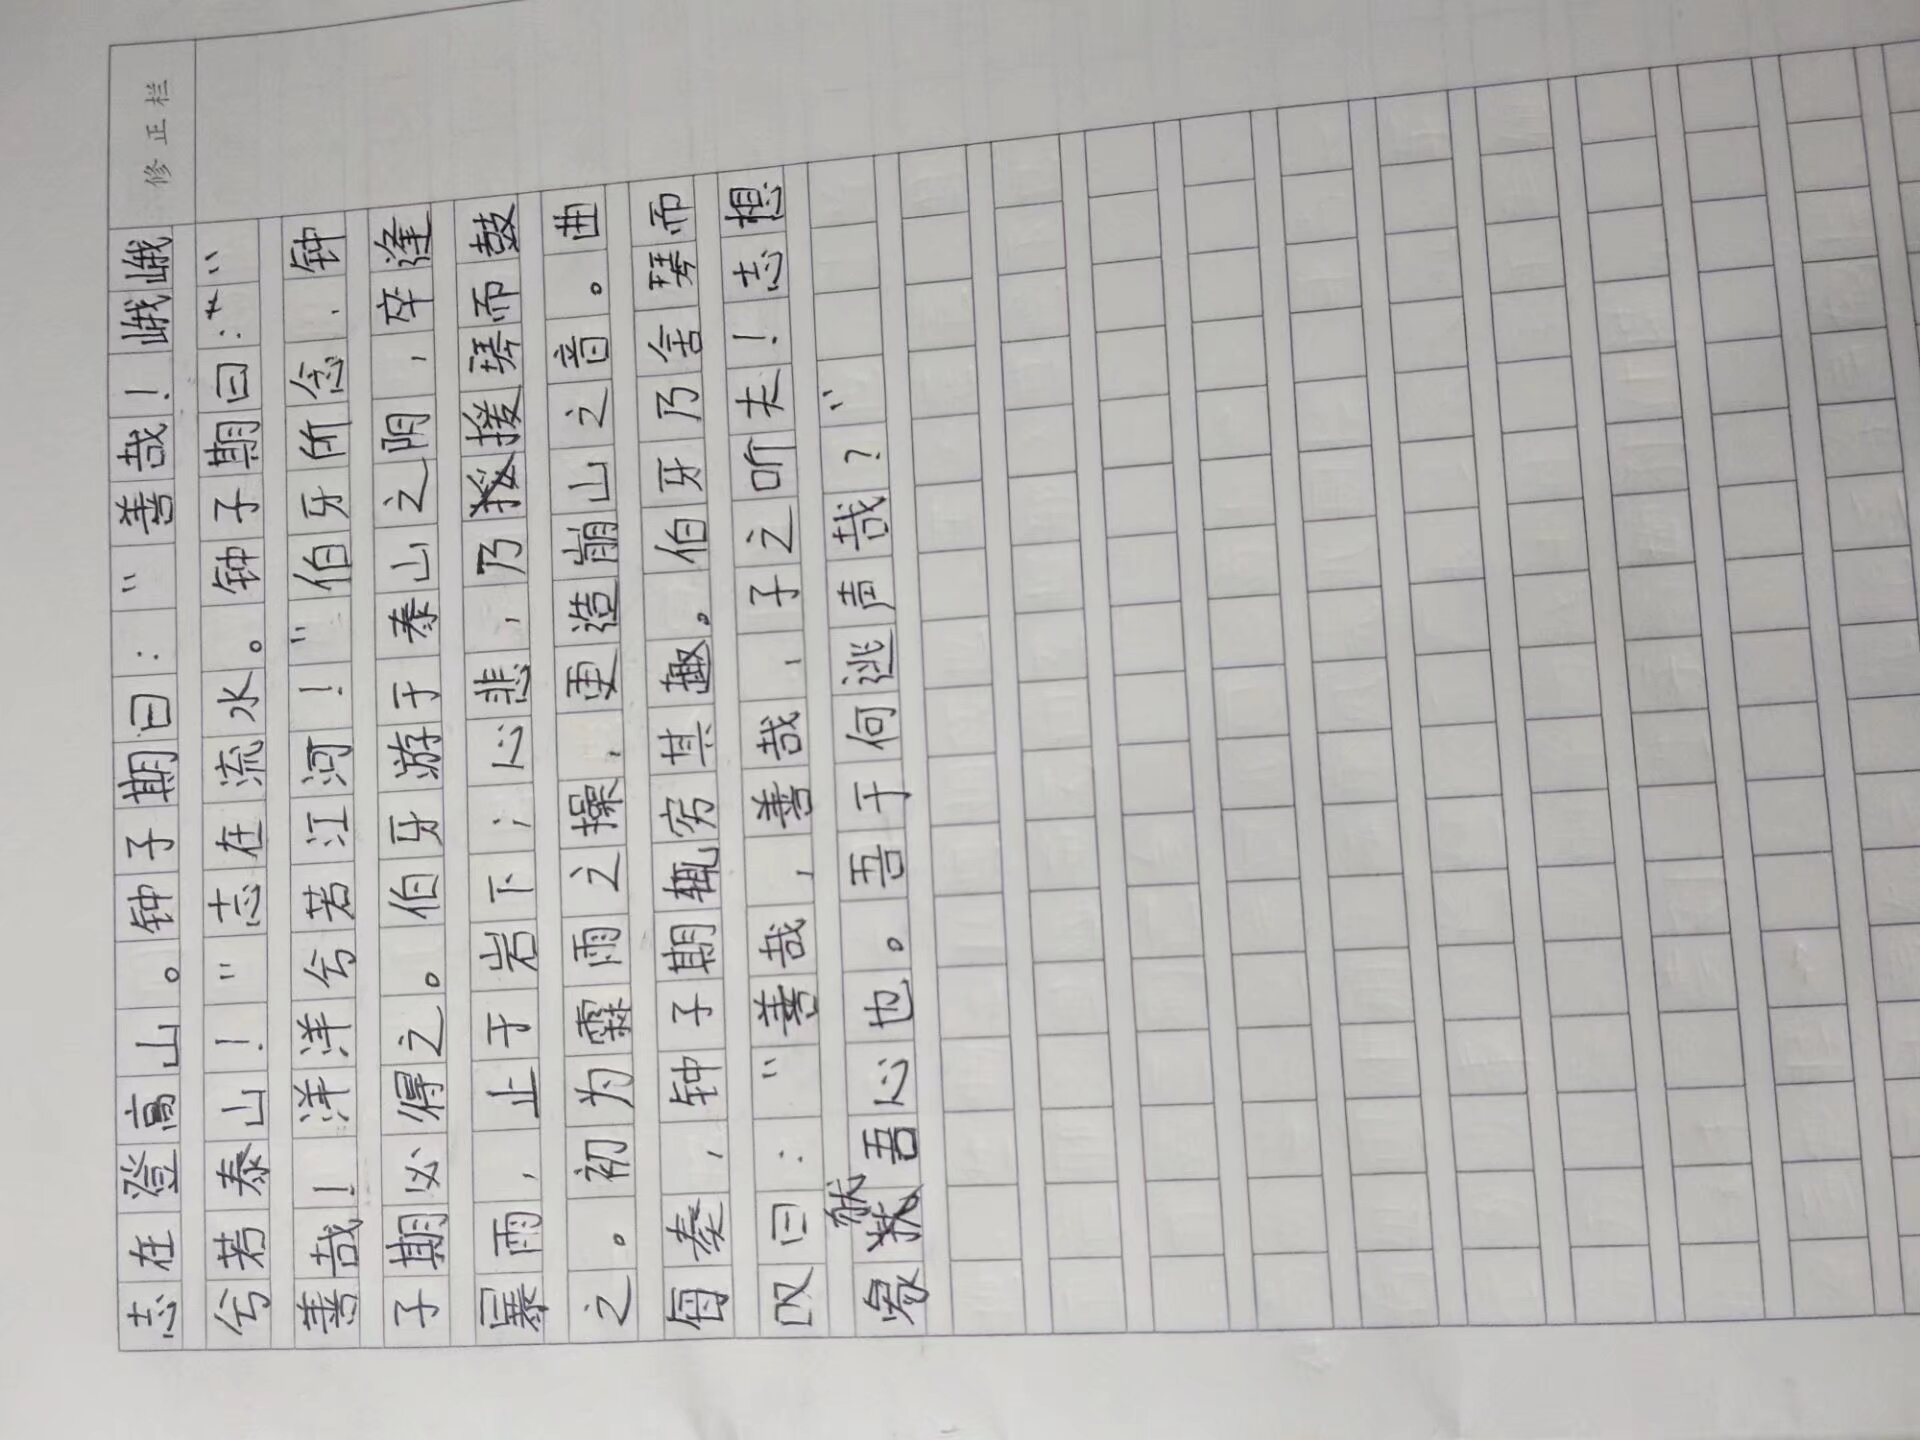 修正栏
志在登高山。钟子期曰:“善哉!峨峨
兮若泰山!”志在流水。钟子期曰:“
善哉!洋洋兮若江河!”伯牙所念,钟
子期必得之。伯牙游于泰山之阴,卒逢
暴雨,止于岩下;心悲,乃援琴而鼓
之。初为霖雨之操,更造崩山之音。曲
每奏,钟子期辄穷其趣。伯牙乃舍琴而
叹曰:“善哉,善哉,子之听夫!志想
象犹吾心也。吾于何逃声哉?”